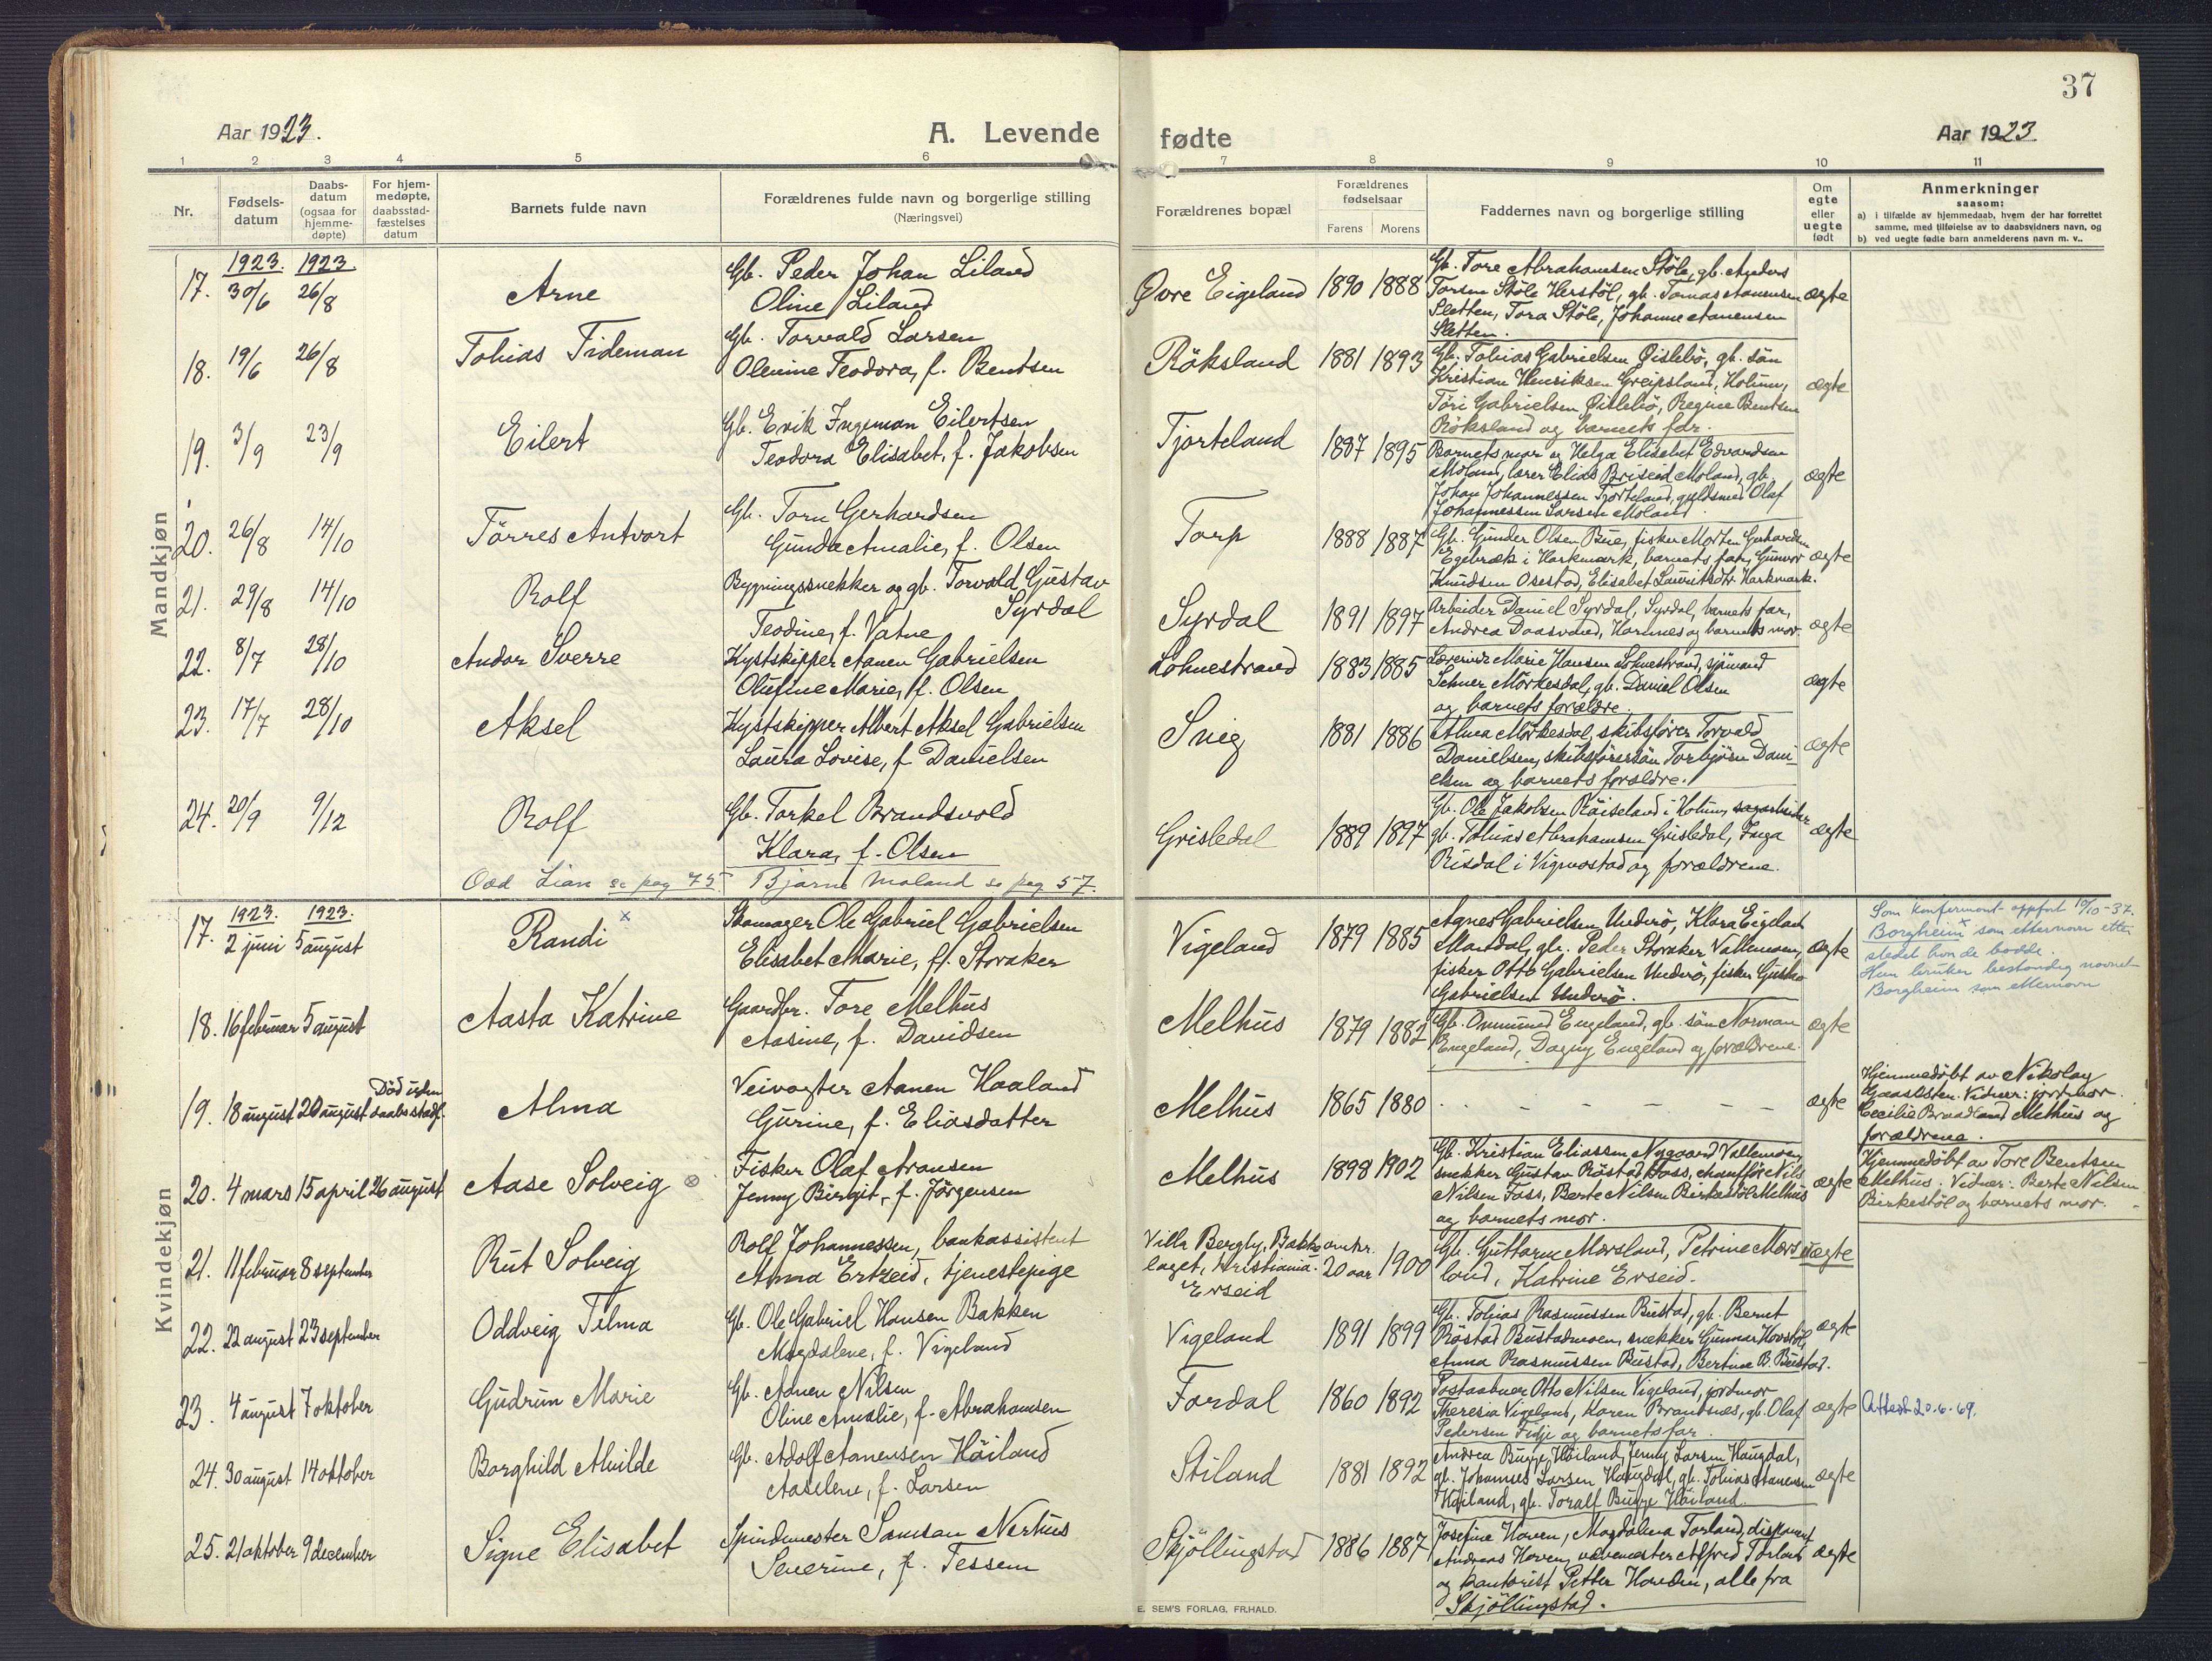 37
Aar 1923.
A. Levende fødte
Aar 1923
1 2 3 4 5 6 7 8 9 10 11
Nr.
Fødsels-
datum
Daabs-
datum
(ogsaa for
hjemme-
døpte)
For hjem-
medøpte,
daabsstad-
fæstelses
datum
Barnets fulde navn
Forældrenes fulde navn og borgerlige stilling
(Næringsvei)
Forældrenes bopæl
Forældrenes
fødselsaar
Farens Morens
Faddernes navn og borgerlige stilling
Om
egte
eller
uegte
født
Anmerkninger
saasom:
a) i tilfælde av hjemmedaab, hvem der har forrettet
samme, med tilføielse av to daabsvidners navn, og
b) ved uegte fødte barn anmelderens navn m. v..
Mandkjøn
1923. 1923.
17. 30/6 26/8
Arne
Gb. Peder Johan Liland
Oline Liland
Øvre Eigeland 1890 1888
Gb. Tore Abrahamsen Støle, gb. Anders
Torsen Støle Herstøl, gb. Tomas Aanensen
Sletten, Tora Støle, Johanne Aanensen
Sletten.
ægte
18. 19/6 26/8
Tobias Tideman
Gb. Torvald Larsen
Olenine Teodora, f. Bentsen
Röksland 1881 1893
Gb. Tobias Gabrielsen Øislebö, gb. sön
Kristian Henriksen Greipsland, Holum,
Töri Gabrielsen Øislebö, Regine Bentsen
Röksland og barnets far.
ægte
19. 3/9 23/9
Eilert
Gb. Erik Ingeman Eilertsen
Teodora Elisabet, f. Jakobsen
Tjorteland 1887 1895
Barnets mor og Helga Elisabet Edvardsen
Moland, lærer Elias Briseid Moland, gb.
Johan Johannessen Tjorteland, guldsmed Olaf
Johannessen Larsen Moland
ægte
20. 26/8 14/10
Törres Antvort
Gb. Torn Gerhardsen
Gunda Amalie, f. Olsen
Torp 1888 1887
Gb. Gunder Olsen Bue, fisker Morten Gerhardsen
Egebræk i Harkmark, barnets far, Gunvor
Knudsen Osestad, Elisabet Lauritsdtr. Harkmark.
ægte
21. 29/8 14/10
Rolf
Bygningssnekker og gb. Torvald Gustav
Syrdal
Teodine, f. Vatne
Syrdal 1891 1897
Arbeider Daniel Syrdal, Syrdal, barnets far,
Andrea Daasvand, Homnes og barnets mor.
ægte
22. 8/7 28/10
Andor Sverre
Kystskipper Aanen Gabrielsen
Olufine Marie, f. Olsen
Lohnestrand 1883 1885
Lærerinde Marie Hansen Lohnestrand, sjömand
Selmer Mörkesdal, gb. Daniel Olsen
og barnets forældre.
ægte
23. 17/7 28/10
Aksel
Kystskipper Albert Aksel Gabrielsen
Laura Lovise, f. Danielsen
Snig 1881 1886
Alma Mörkesdal, skibsförer Torvald
Danielsen, skibsförersön Torbjörn Dani-
elsen og barnets forældre.
ægte
24. 20/9 9/12
Rolf
Gb. Torkel Brandsvold
Klara, f. Olsen
Grisledal 1889 1897
Gb. Ole Jakobsen Röiseland i Holum, sagarbeider
gb. Tobias Abrahamsen Grisledal, Inga
Risdal i Vigmostad og forældrene.
ægte
Odd Lian se pag 75. Bjarne Moland se pag 57.
Kvindekjøn
1923. 1923.
17. 2 juni 5 august
Randi x
Skomager Ole Gabriel Gabrielsen
Elisabet Marie, f. Storaker
Vigeland 1879 1885
Agnes Gabrielsen Underö, Klara Eigeland
Mandal, gb. Peder Storaker Vallemoen,
fisker Otto Gabrielsen Underö, fisker Gustav
Gabrielsen Underö.
ægte
Som konfirmant oppfört 10/10-37.
Borgheim x som etternavn etter
stedet hun de bodde.
Hun bruker bestandig navnet
Borgheim som etternavn
18. 16 februar 5 august
Aasta Katrine
Gaardbr. Tore Melhus
Aasine, f. Davidsen
Melhus 1879 1882
Gb. Ommund Engeland, gb. sön Norman
Engeland, Dagny Engeland og forældrene.
ægte
19. 18 august 20 august Död uden daabsstadf.
Alma
Veivogter Aanen Haaland
Gurine, f. Eliasdatter
Melhus 1865 1880
- - - - - -
ægte
Hjemmedöbt av Nikolay
Gaasesten. Vidner: jordmor
Cecilie Braadland Melhus og
forældrene.
20. 4 mars 15 april 26 august
Aase Solveig ⊗
Fisker Olaf Aransen
Jenny Birgit, f. Jörgensen
Melhus 1898 1902
Gb. Kristian Eliassen Nygaard Vallemoen,
snekker Gustav Röstad Foss, chaufför Nils
Nilsen Foss, Berte Nilsen Birkestöl Melhus
og barnets mor.
ægte
Hjemmedöbt av Tore Bentsen
Melhus. Vidner: Berte Nilsen
Birkestöl og barnets mor.
21. 11 februar 8 september
Rut Solveig
Rolf Johannessen, bankassistent
Anna Ertzeid, tjenestepige
Villa Bergly, Bakke-
laget, Kristiania.
Erseid
omkr.
20 aar 1900
Gb. Guttorm Mersland, Petrine Mers-
land, Katrine Erseid.
uegte
22. 22 august 23 september
Oddveig Tilma
Gb. Ole Gabriel Hansen Bakken
Magdalene, f. Vigeland
Vigeland 1891 1899
Gb. Tobias Rasmussen Bustad, gb. Bernt
Röstad Bustadmoen, snekker Gunnar Hovstöl,
Anna Rasmussen Bustad, Bertine B. Bustad.
ægte
23. 4 august 7 oktober
Gudrun Marie
Gb. Aanen Nilsen
Oline Amalie, f. Abrahamsen
Fardal 1860 1892
Postaabner Otto Nilsen Vigeland, jordmor
Theresia Vigeland, Karen Brandsnes, gb. Olaf
Pedersen Fidje og barnets far.
ægte
Attest 20.6.69.
24. 30 august 14 oktober
Borghild Alvilde
Gb. Adolf Aanensen Höiland
Aaselene, f. Larsen
Stiland 1881 1892
Andrea Bugge Höiland, Jenny Larsen Haugdal,
gb. Johannes Larsen Haugdal, gb. Tobias Aanensen
Höiland, gb. Toralf Bugge Höiland.
ægte
25. 21 oktober 9 december
Signe Elisabet
Spindemester Samson Nerhus
Severine, f. Tessem
Skjöllingstad 1886 1887
Josefine Hoven, Magdalena Torland, disponent
Andreas Hoven, vævemester Alfred Torland
og kontorist Petter Hovden, alle fra
Skjöllingstad.
ægte
E. SEM'S FORLAG, FR.HALD.